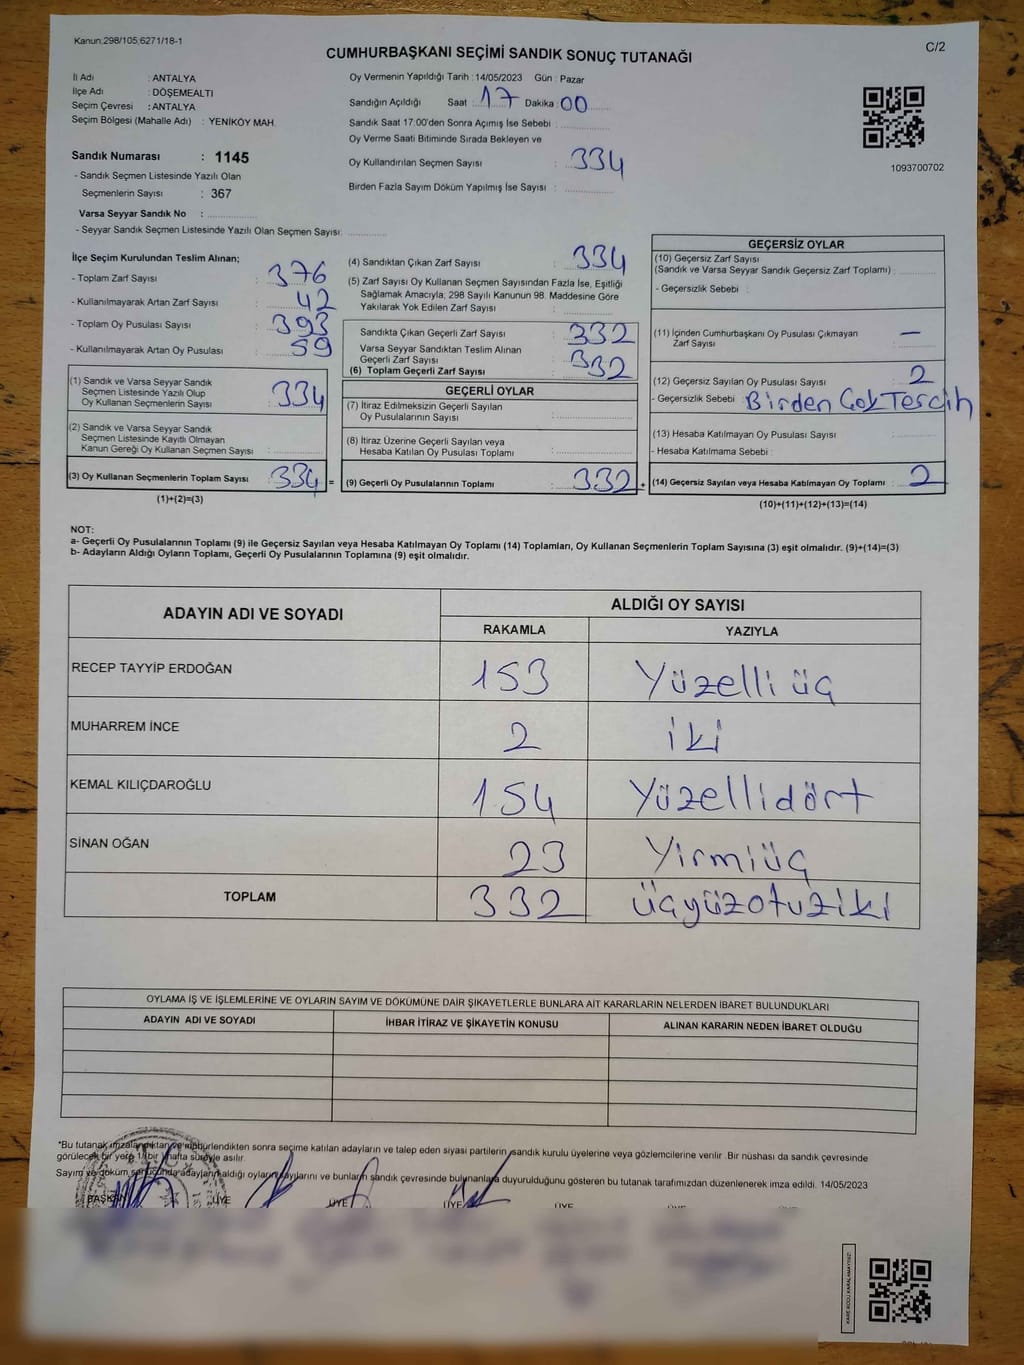 Kanun:298/105;6271/18-1
C/2
CUMHURBAŞKANI SEÇİMİ SANDIK SONUÇ TUTANAĞI
İl Adı : ANTALYA
İlçe Adı : DÖŞEMEALTI
Seçim Çevresi : ANTALYA
Seçim Bölgesi (Mahalle Adı) : YENİKÖY MAH.
Sandık Numarası : 1145
- Sandık Seçmen Listesinde Yazılı Olan
Seçmenlerin Sayısı : 367
Varsa Seyyar Sandık No :
- Seyyar Sandık Seçmen Listesinde Yazılı Olan Seçmen Sayısı:
Oy Vermenin Yapıldığı Tarih : 14/05/2023 Gün : Pazar
Sandığın Açıldığı Saat : 17 Dakika : 00
Sandık Saat 17:00'den Sonra Açımış İse Sebebi :
Oy Verme Saati Bitiminde Sırada Bekleyen ve
Oy Kullandırılan Seçmen Sayısı : 334
Birden Fazla Sayım Döküm Yapılmış İse Sayısı :
1093700702
İlçe Seçim Kurulundan Teslim Alınan;
- Toplam Zarf Sayısı : 376
- Kullanılmayarak Artan Zarf Sayısı : 42
- Toplam Oy Pusulası Sayısı : 393
- Kullanılmayarak Artan Oy Pusulası : 59
(1) Sandık ve Varsa Seyyar Sandık
Seçmen Listesinde Yazılı Olup
Oy Kullanan Seçmenlerin Sayısı : 334
(2) Sandık ve Varsa Seyyar Sandık
Seçmen Listesinde Kayıtlı Olmayan
Kanun Gereği Oy Kullanan Seçmen Sayısı :
(3) Oy Kullanan Seçmenlerin Toplam Sayısı : 334 =
(1)+(2)=(3)
(4) Sandıktan Çıkan Zarf Sayısı : 334
(5) Zarf Sayısı Oy Kullanan Seçmen Sayısından Fazla İse, Eşitliği
Sağlamak Amacıyla; 298 Sayılı Kanunun 98. Maddesine Göre
Yakılarak Yok Edilen Zarf Sayısı :
Sandıkta Çıkan Geçerli Zarf Sayısı : 332
Varsa Seyyar Sandıktan Teslim Alınan
Geçerli Zarf Sayısı :
(6) Toplam Geçerli Zarf Sayısı : 332
GEÇERLİ OYLAR
(7) İtiraz Edilmeksizin Geçerli Sayılan
Oy Pusulalarının Sayısı :
(8) İtiraz Üzerine Geçerli Sayılan veya
Hesaba Katılan Oy Pusulası Toplamı :
(9) Geçerli Oy Pusulalarının Toplamı : 332 +
GEÇERSİZ OYLAR
(10) Geçersiz Zarf Sayısı
(Sandık ve Varsa Seyyar Sandık Geçersiz Zarf Toplamı) :
- Geçersizlik Sebebi :
(11) İçinden Cumhurbaşkanı Oy Pusulası Çıkmayan
Zarf Sayısı : —
(12) Geçersiz Sayılan Oy Pusulası Sayısı : 2
- Geçersizlik Sebebi : Birden Çok Tercih
(13) Hesaba Katılmayan Oy Pusulası Sayısı :
- Hesaba Katılmama Sebebi :
(14) Geçersiz Sayılan veya Hesaba Katılmayan Oy Toplamı : 2
(10)+(11)+(12)+(13)=(14)
NOT:
a- Geçerli Oy Pusulalarının Toplamı (9) ile Geçersiz Sayılan veya Hesaba Katılmayan Oy Toplamı (14) Toplamları, Oy Kullanan Seçmenlerin Toplam Sayısına (3) eşit olmalıdır. (9)+(14)=(3)
b- Adayların Aldığı Oyların Toplamı, Geçerli Oy Pusulalarının Toplamına (9) eşit olmalıdır.
ADAYIN ADI VE SOYADI
ALDIĞI OY SAYISI
RAKAMLA YAZIYLA
RECEP TAYYİP ERDOĞAN 153 Yüzelli üç
MUHARREM İNCE 2 iki
KEMAL KILIÇDAROĞLU 154 Yüzellidört
SİNAN OĞAN 23 Yirmiüç
TOPLAM 332 üçyüzotuziki
OYLAMA İŞ VE İŞLEMLERİNE VE OYLARIN SAYIM VE DÖKÜMÜNE DAİR ŞİKAYETLERLE BUNLARA AİT KARARLARIN NELERDEN İBARET BULUNDUKLARI
ADAYIN ADI VE SOYADI İHBAR İTİRAZ VE ŞİKAYETİN KONUSU ALINAN KARARIN NEDEN İBARET OLDUĞU
*Bu tutanak imzalandıktan ve mühürlendikten sonra seçime katılan adayların ve talep eden siyasi partilerin sandık kurulu üyelerine veya gözlemcilerine verilir. Bir nüshası da sandık çevresinde
görülecek bir yere 1 (bir) hafta süreyle asılır.
Sayım ve döküm sonucunda adayların aldığı oyların sayılarını ve bunların sandık çevresinde bulunanlara duyurulduğunu gösteren bu tutanak tarafımızdan düzenlenerek imza edildi. 14/05/2023
BAŞKAN ÜYE ÜYE ÜYE ÜYE
KARE KODU KARALAMAYINIZ!